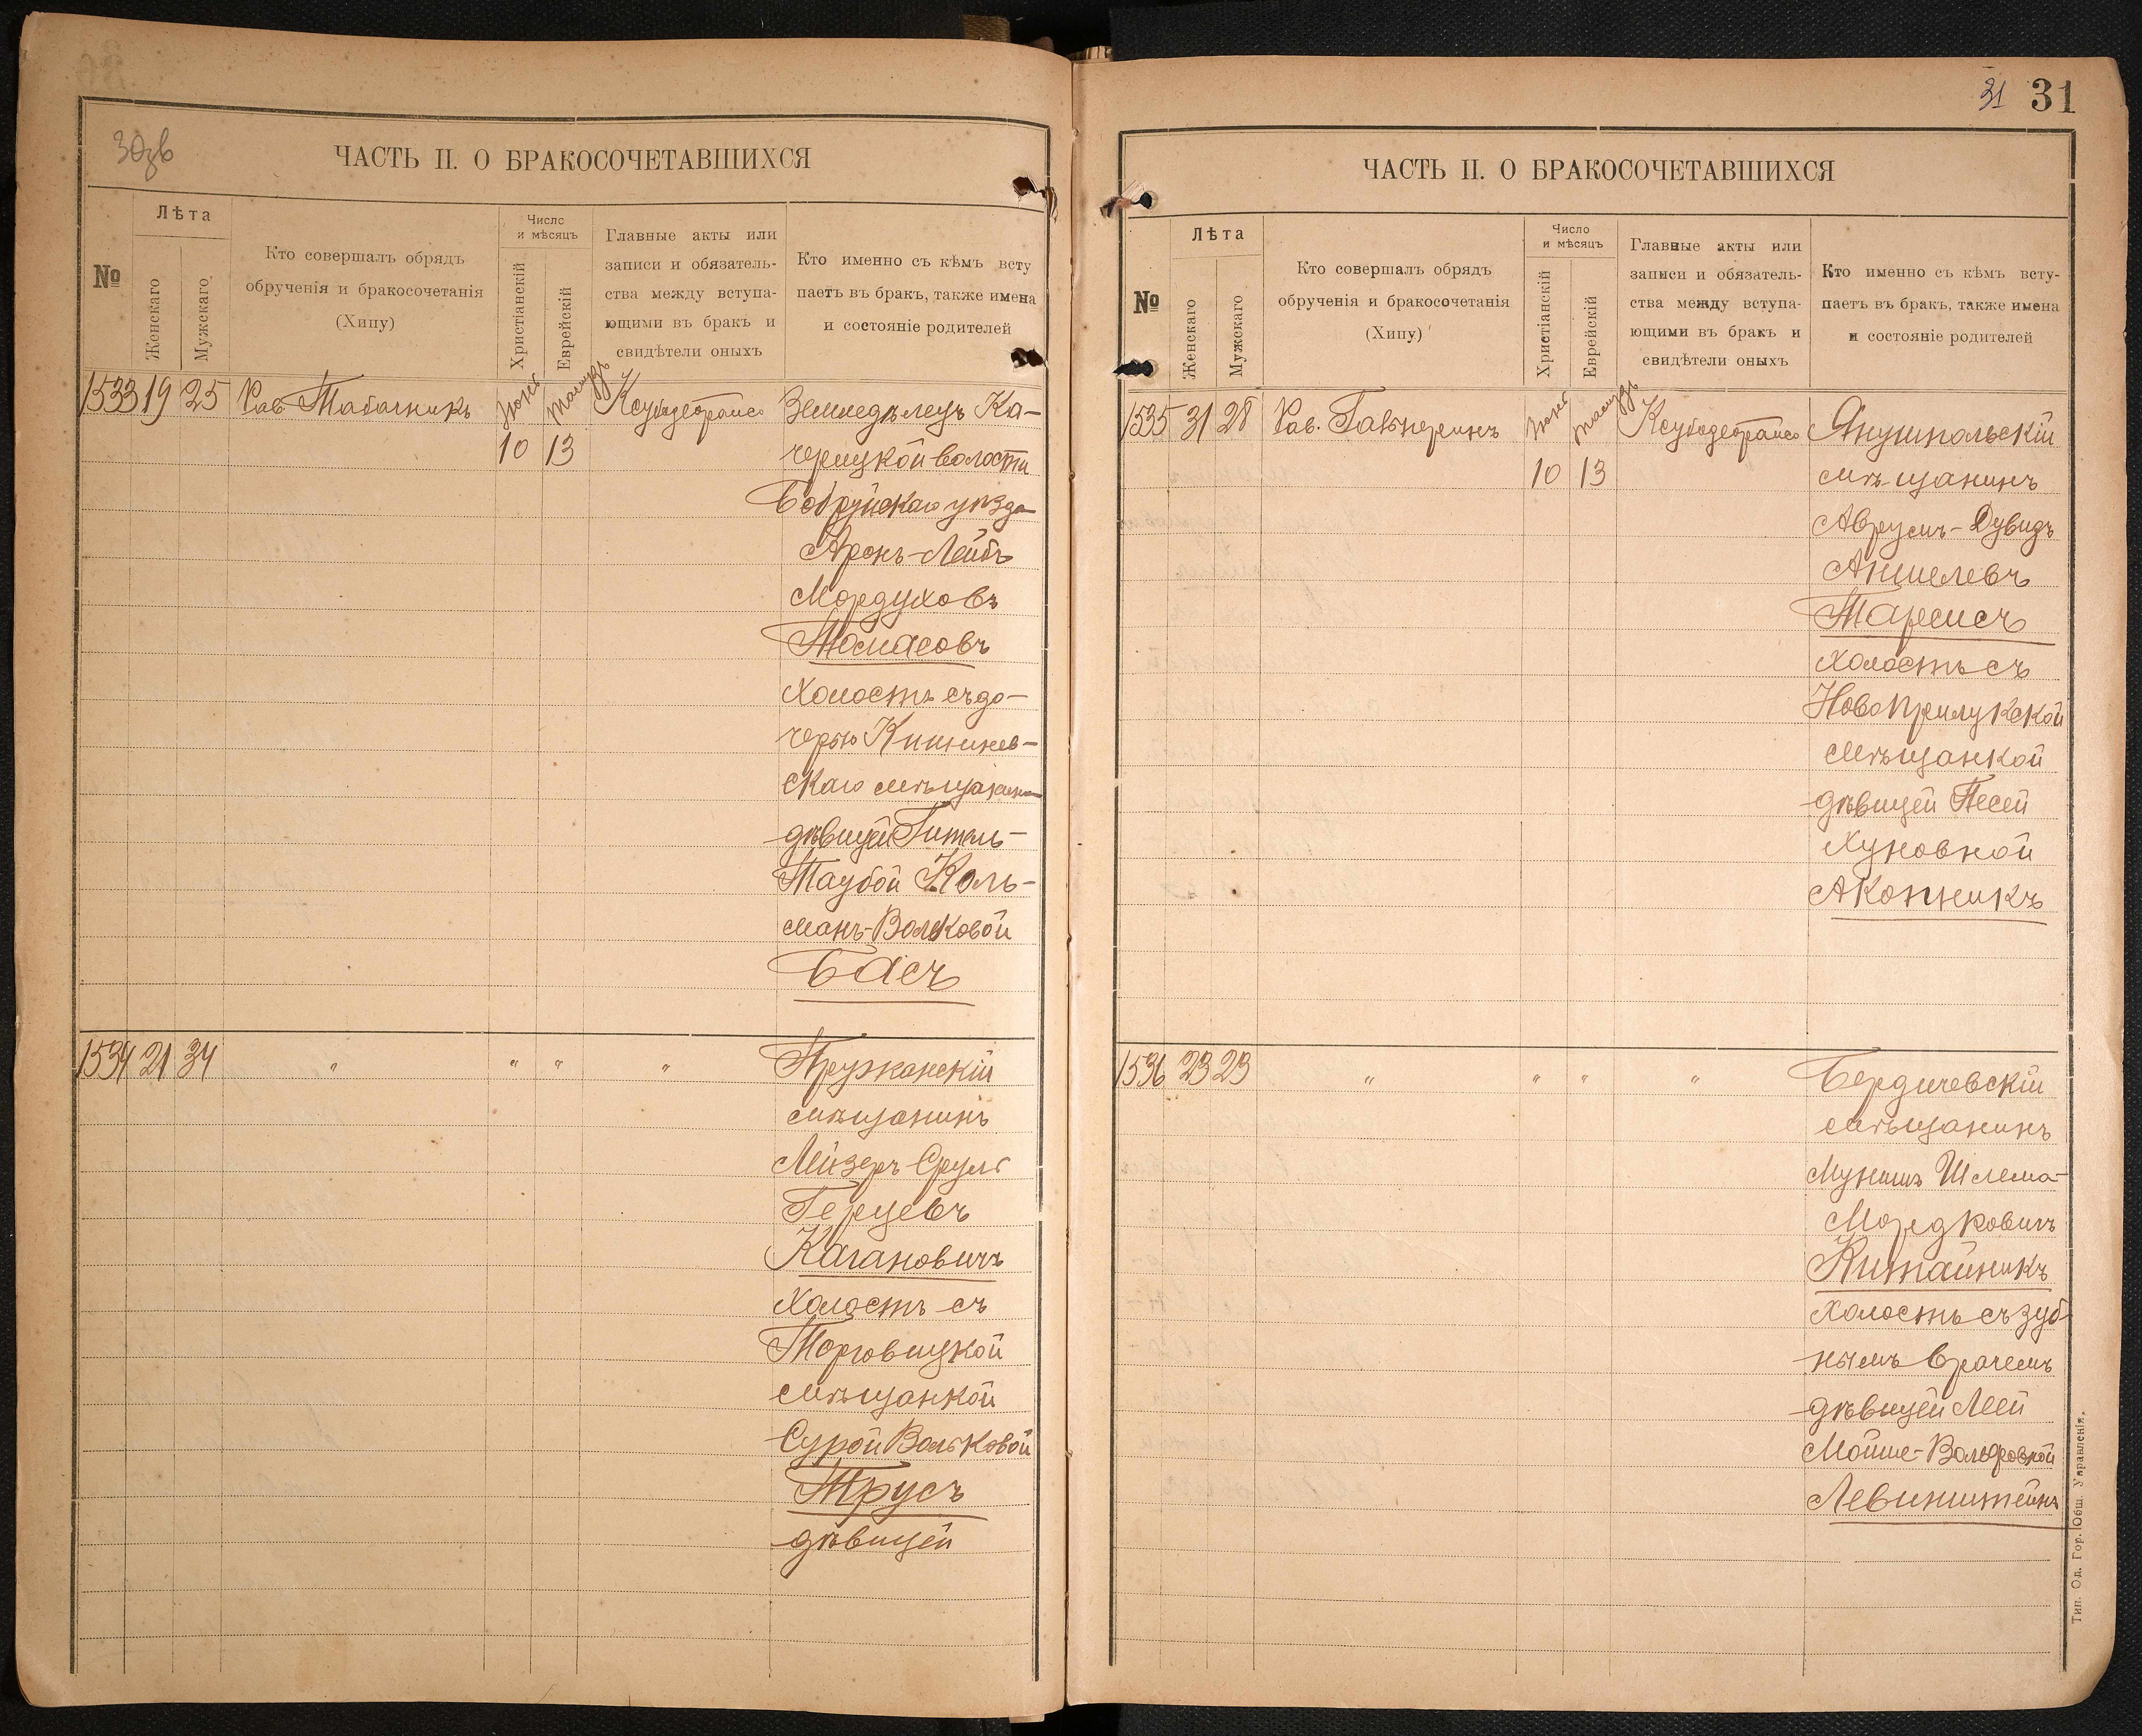 30зв
ЧАСТЬ II. О БРАКОСОЧЕТАВШИХСЯ
№
Лѣта
Женскаго
Мужскаго
Кто совершалъ обрядъ
обрученія и бракосочетанія
(Хипу)
Число
и мѣсяцъ
Христіанскій
Еврейскій
Главные акты или
записи и обязатель-
ства между вступа-
ющими въ бракъ и
свидѣтели оныхъ
Кто именно съ кѣмъ всту
паетъ въ бракъ, также имена
и состояніе родителей
1533 19 25 Рав Табачникъ Іюня Тамузъ Земледѣлецъ Ка-
10 13 черицкой волости
Бобруйскаго уѣзда
Аронъ-Лейбъ
Мордуховъ
холостъ съ до-
черью Кишинев-
скаго мѣщанина
дѣвицей Гитель-
Таубой Каль-
манъ-Вольковой
Басъ
1534 21 34 " " " " Пружанскій
мѣщанинъ
Лейзеръ Сруль
Герцевъ
Кагановичъ
холостъ съ
Торговицкой
мѣщанкой
Сурой Вольковой
Трусъ
дѣвицей
31 31
ЧАСТЬ II. О БРАКОСОЧЕТАВШИХСЯ
№
Лѣта
Женскаго
Мужскаго
Кто совершалъ обрядъ
обрученія и бракосочетанія
(Хипу)
Число
и мѣсяцъ
Христіанскій
Еврейскій
Главные акты или
записи и обязатель-
ства между вступа-
ющими въ бракъ и
свидѣтели оныхъ
Кто именно съ кѣмъ всту-
паетъ въ бракъ, также имена
и состояніе родителей
1535 31 28 Рав. Гальперинъ Іюня Тамузъ Янушпольскій
10 13 мѣщанинъ
Аврумъ-Дувидъ
Аншелевъ
холостъ съ
Новоприлукской
мѣщанкой
дѣвицей Песей
Хуновной
Акопникъ
1536 23 23 " " " " Бердичевскій
мѣщанинъ
Мунишъ Шлема-
Мордковичъ
Китайникъ
холостъ съ зуб-
нымъ врачемъ
дѣвицей Леей
Мойше-Вольфовной
Левинштейнъ
Тип. Од. Гор. Общ. Управленія.